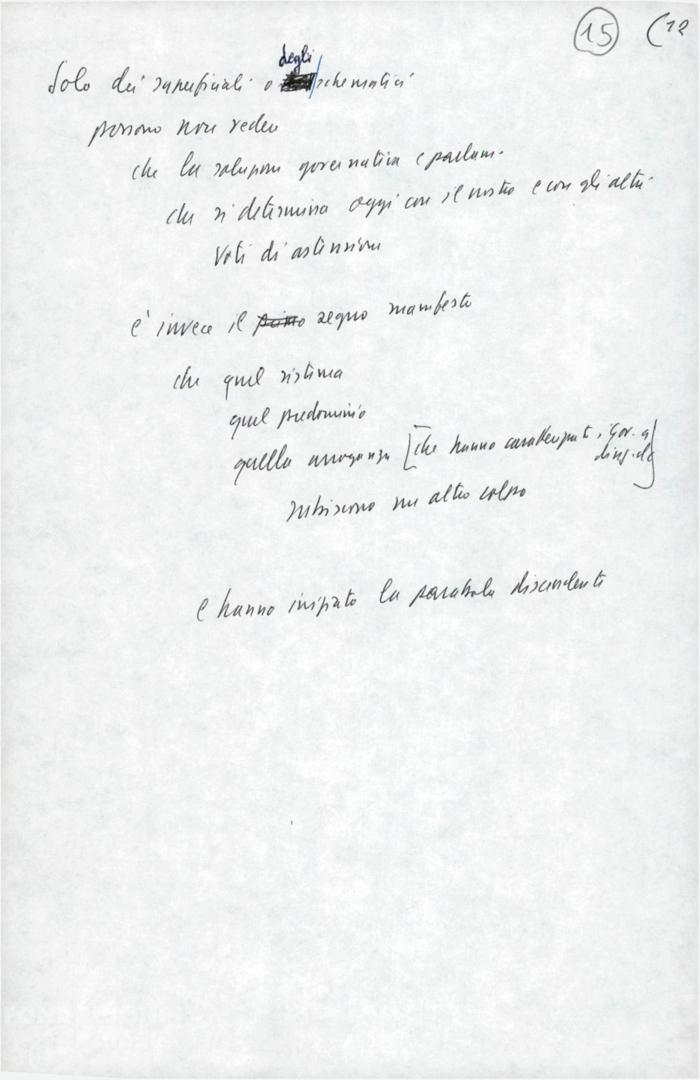 15 (12
degli
Solo dei superficiali o schematici
possono non vedere
che la soluzione governativa e parlam.
che si determina oggi con il nostro e con gli altri
voti di astensione
è invece il primo segno manifesto
che quel sistema
quel predominio
quella arroganza [che hanno caratterizzati i gov. a
direz. dc]
subiscono un altro colpo
e hanno iniziato la parabola discendente